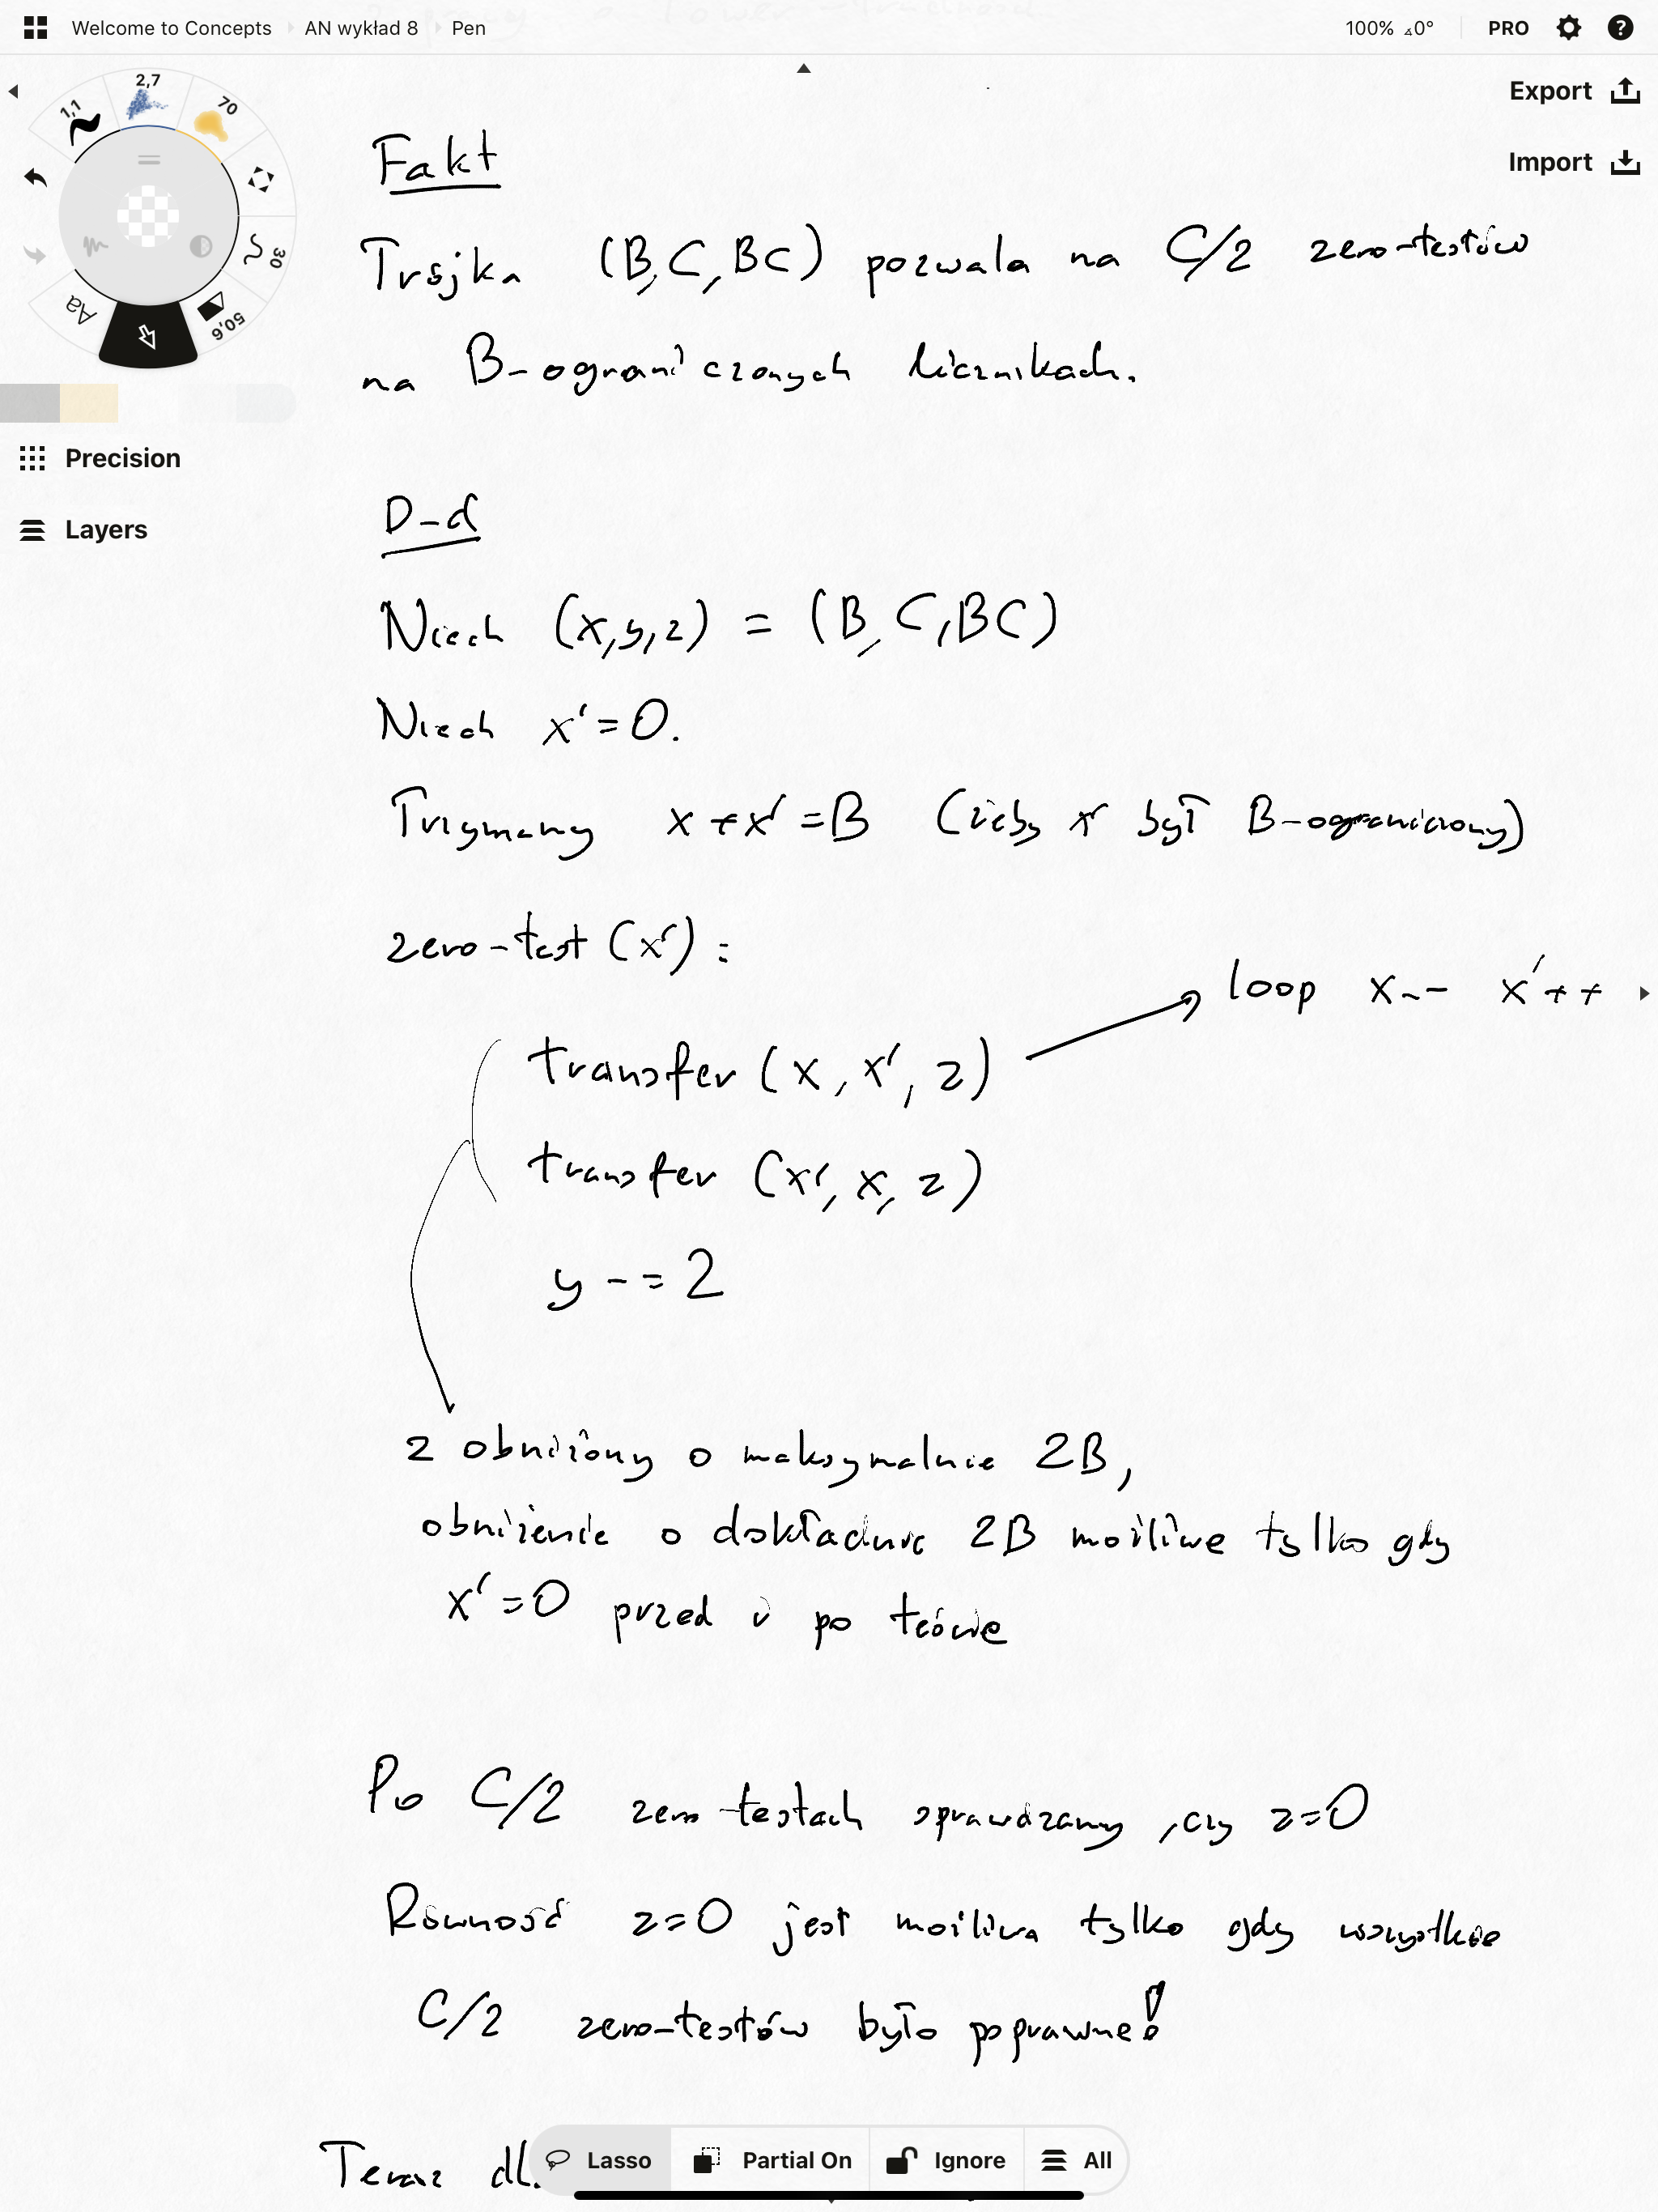 Welcome to Concepts AN wykład 8 Pen 100% ⊿0° PRO
Export
Import
1,1 2,7 70
30
50,6
Aa
Precision
Layers
Fakt
Trójka (B, C, BC) pozwala na C/2 zero-testów
na B-ograniczonych licznikach.
D-d
Niech (x,y,z) = (B, C, BC)
Niech x' = 0.
Trzymamy x + x' = B (żeby x' był B-ograniczony)
zero-test (x') :
loop x-- x'++
transfer (x, x', z)
transfer (x', x, z)
y -= 2
z obniżony o maksymalnie 2B,
obniżenie o dokładnie 2B możliwe tylko gdy
x' = 0 przed i po teście
Po C/2 zero-testach sprawdzamy, czy z=0
Równość z=0 jest możliwa tylko gdy wszystkie
C/2 zero-testów było poprawne!
Teraz
Lasso Partial On Ignore All